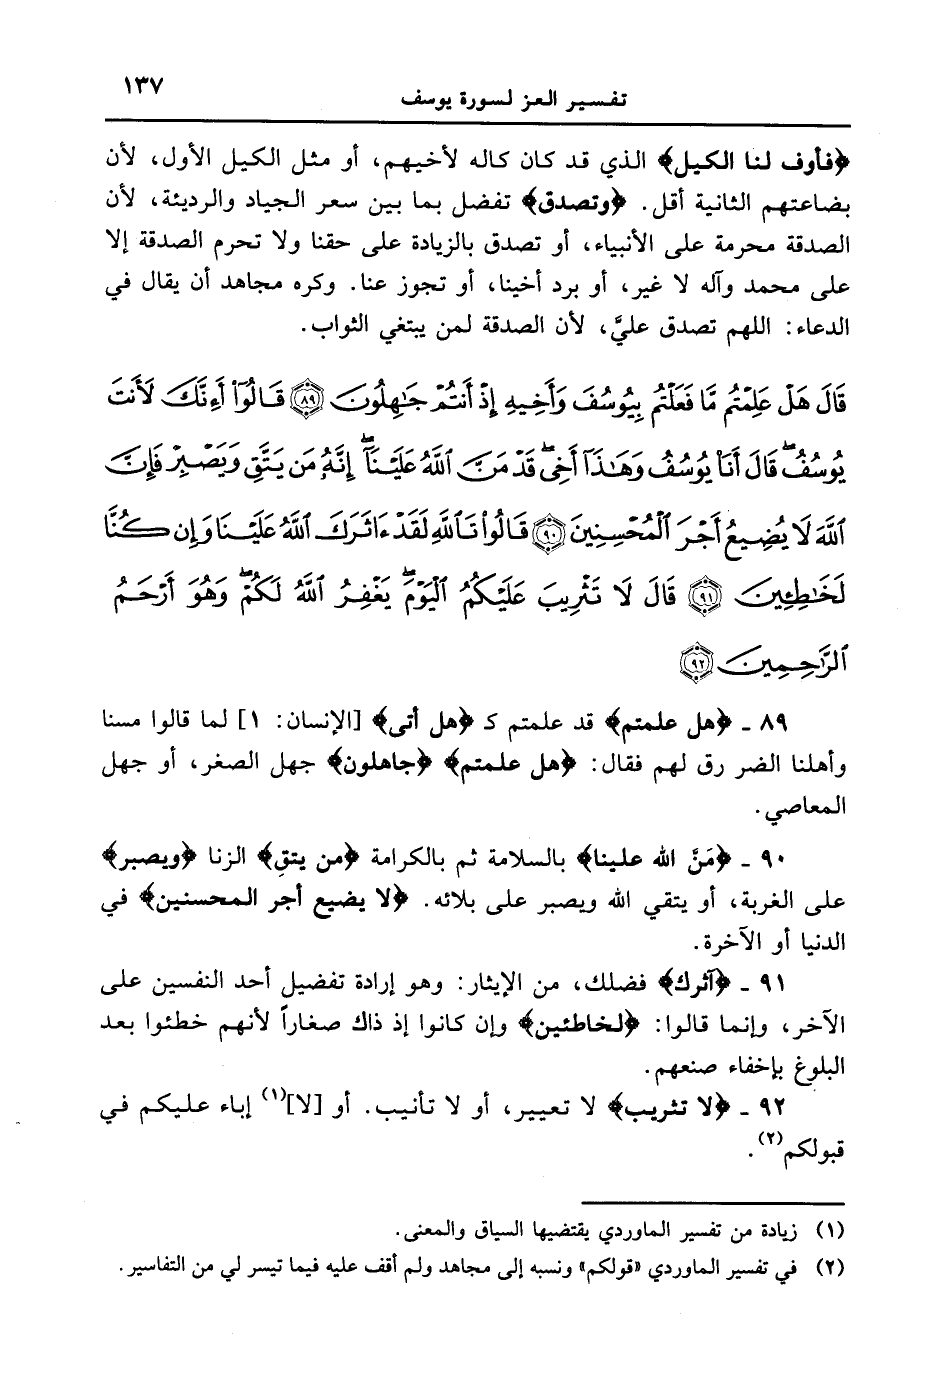 ١٣٧
تفسير العز لسورة يوسف
﴿فأوف لنا الكيل﴾ الذي قد كان كاله لأخيهم، أو مثل الكيل الأول، لأن
بضاعتهم الثانية أقل. ﴿وتصدق﴾ تفضل بما بين سعر الجياد والرديئة، لأن
الصدقة محرمة على الأنبياء، أو تصدق بالزيادة على حقنا ولا تحرم الصدقة إلا
على محمد وآله لا غير، أو برد أخينا، أو تجوز عنا. وكره مجاهد أن يقال في
الدعاء: اللهم تصدق عليَّ، لأن الصدقة لمن يبتغي الثواب.
قَالَ هَلْ عَلِمْتُم مَّا فَعَلْتُم بِيُوسُفَ وَأَخِيهِ إِذْ أَنتُمْ جَٰهِلُونَ ﴿٨٩﴾ قَالُوٓا۟ أَءِنَّكَ لَأَنتَ
يُوسُفُ ۖ قَالَ أَنَا۠ يُوسُفُ وَهَٰذَآ أَخِى ۖ قَدْ مَنَّ ٱللَّهُ عَلَيْنَآ ۖ إِنَّهُۥ مَن يَتَّقِ وَيَصْبِرْ فَإِنَّ
ٱللَّهَ لَا يُضِيعُ أَجْرَ ٱلْمُحْسِنِينَ ﴿٩٠﴾ قَالُوا۟ تَٱللَّهِ لَقَدْ ءَاثَرَكَ ٱللَّهُ عَلَيْنَا وَإِن كُنَّا
لَخَٰطِـِٔينَ ﴿٩١﴾ قَالَ لَا تَثْرِيبَ عَلَيْكُمُ ٱلْيَوْمَ ۖ يَغْفِرُ ٱللَّهُ لَكُمْ ۖ وَهُوَ أَرْحَمُ
ٱلرَّٰحِمِينَ ﴿٩٢﴾
٨٩ ـ ﴿هل علمتم﴾ قد علمتم كـ ﴿هل أتى﴾ [الإنسان: ١] لما قالوا مسنا
وأهلنا الضر رق لهم فقال: ﴿هل علمتم﴾ ﴿جاهلون﴾ جهل الصغر، أو جهل
المعاصي.
٩٠ ـ ﴿مَنَّ الله علينا﴾ بالسلامة ثم بالكرامة ﴿من يتقِ﴾ الزنا ﴿ويصبر﴾
على الغربة، أو يتقي الله ويصبر على بلائه. ﴿لا يضيع أجر المحسنين﴾ في
الدنيا أو الآخرة.
٩١ ـ ﴿آثرك﴾ فضلك، من الإيثار: وهو إرادة تفضيل أحد النفسين على
الآخر، وإنما قالوا: ﴿لخاطئين﴾ وإن كانوا إذ ذاك صغاراً لأنهم خطئوا بعد
البلوغ بإخفاء صنعهم.
٩٢ ـ ﴿لا تثريب﴾ لا تعيير، أو لا تأنيب. أو [لا](١) إباء عليكم في
قبولكم(٢).
(١) زيادة من تفسير الماوردي يقتضيها السياق والمعنى.
(٢) في تفسير الماوردي «قولكم» ونسبه إلى مجاهد ولم أقف عليه فيما تيسر لي من التفاسير.